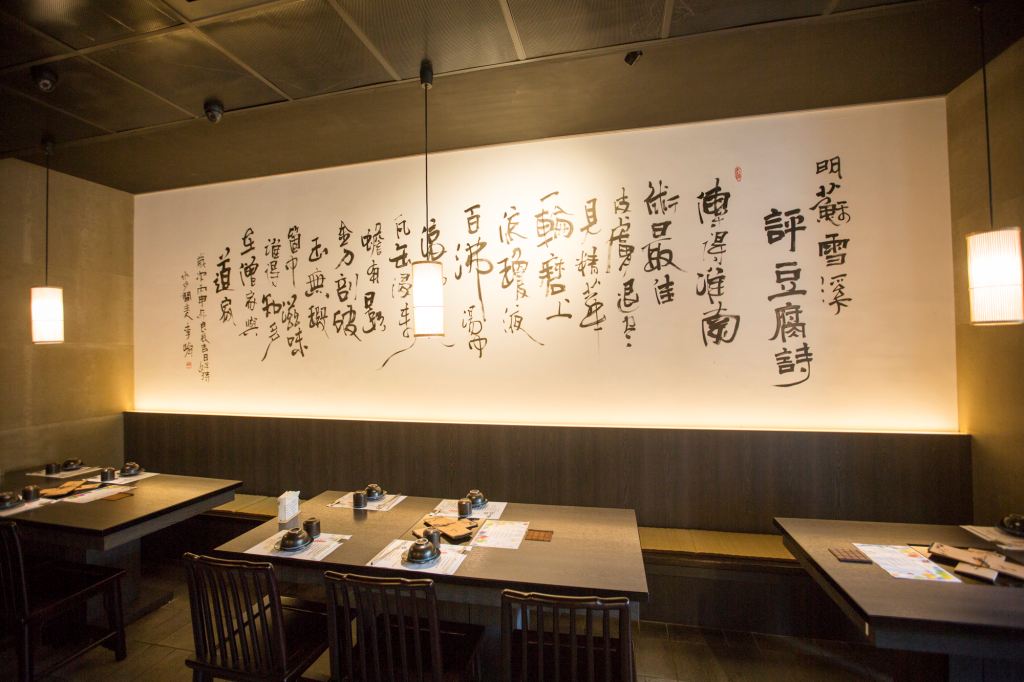 明蘇雪溪
評豆腐詩
傳得淮南
術最佳
皮膚退盡
見精華
一輪磨上
流瓊液
百沸湯中
瓦缶浸來
蟾有影
刀剖破
玉無瑕
箇中滋味
誰得知多
在僧家與
道家
歲次丙申年